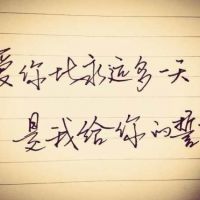 爱你比永远多一天
是我给你的誓